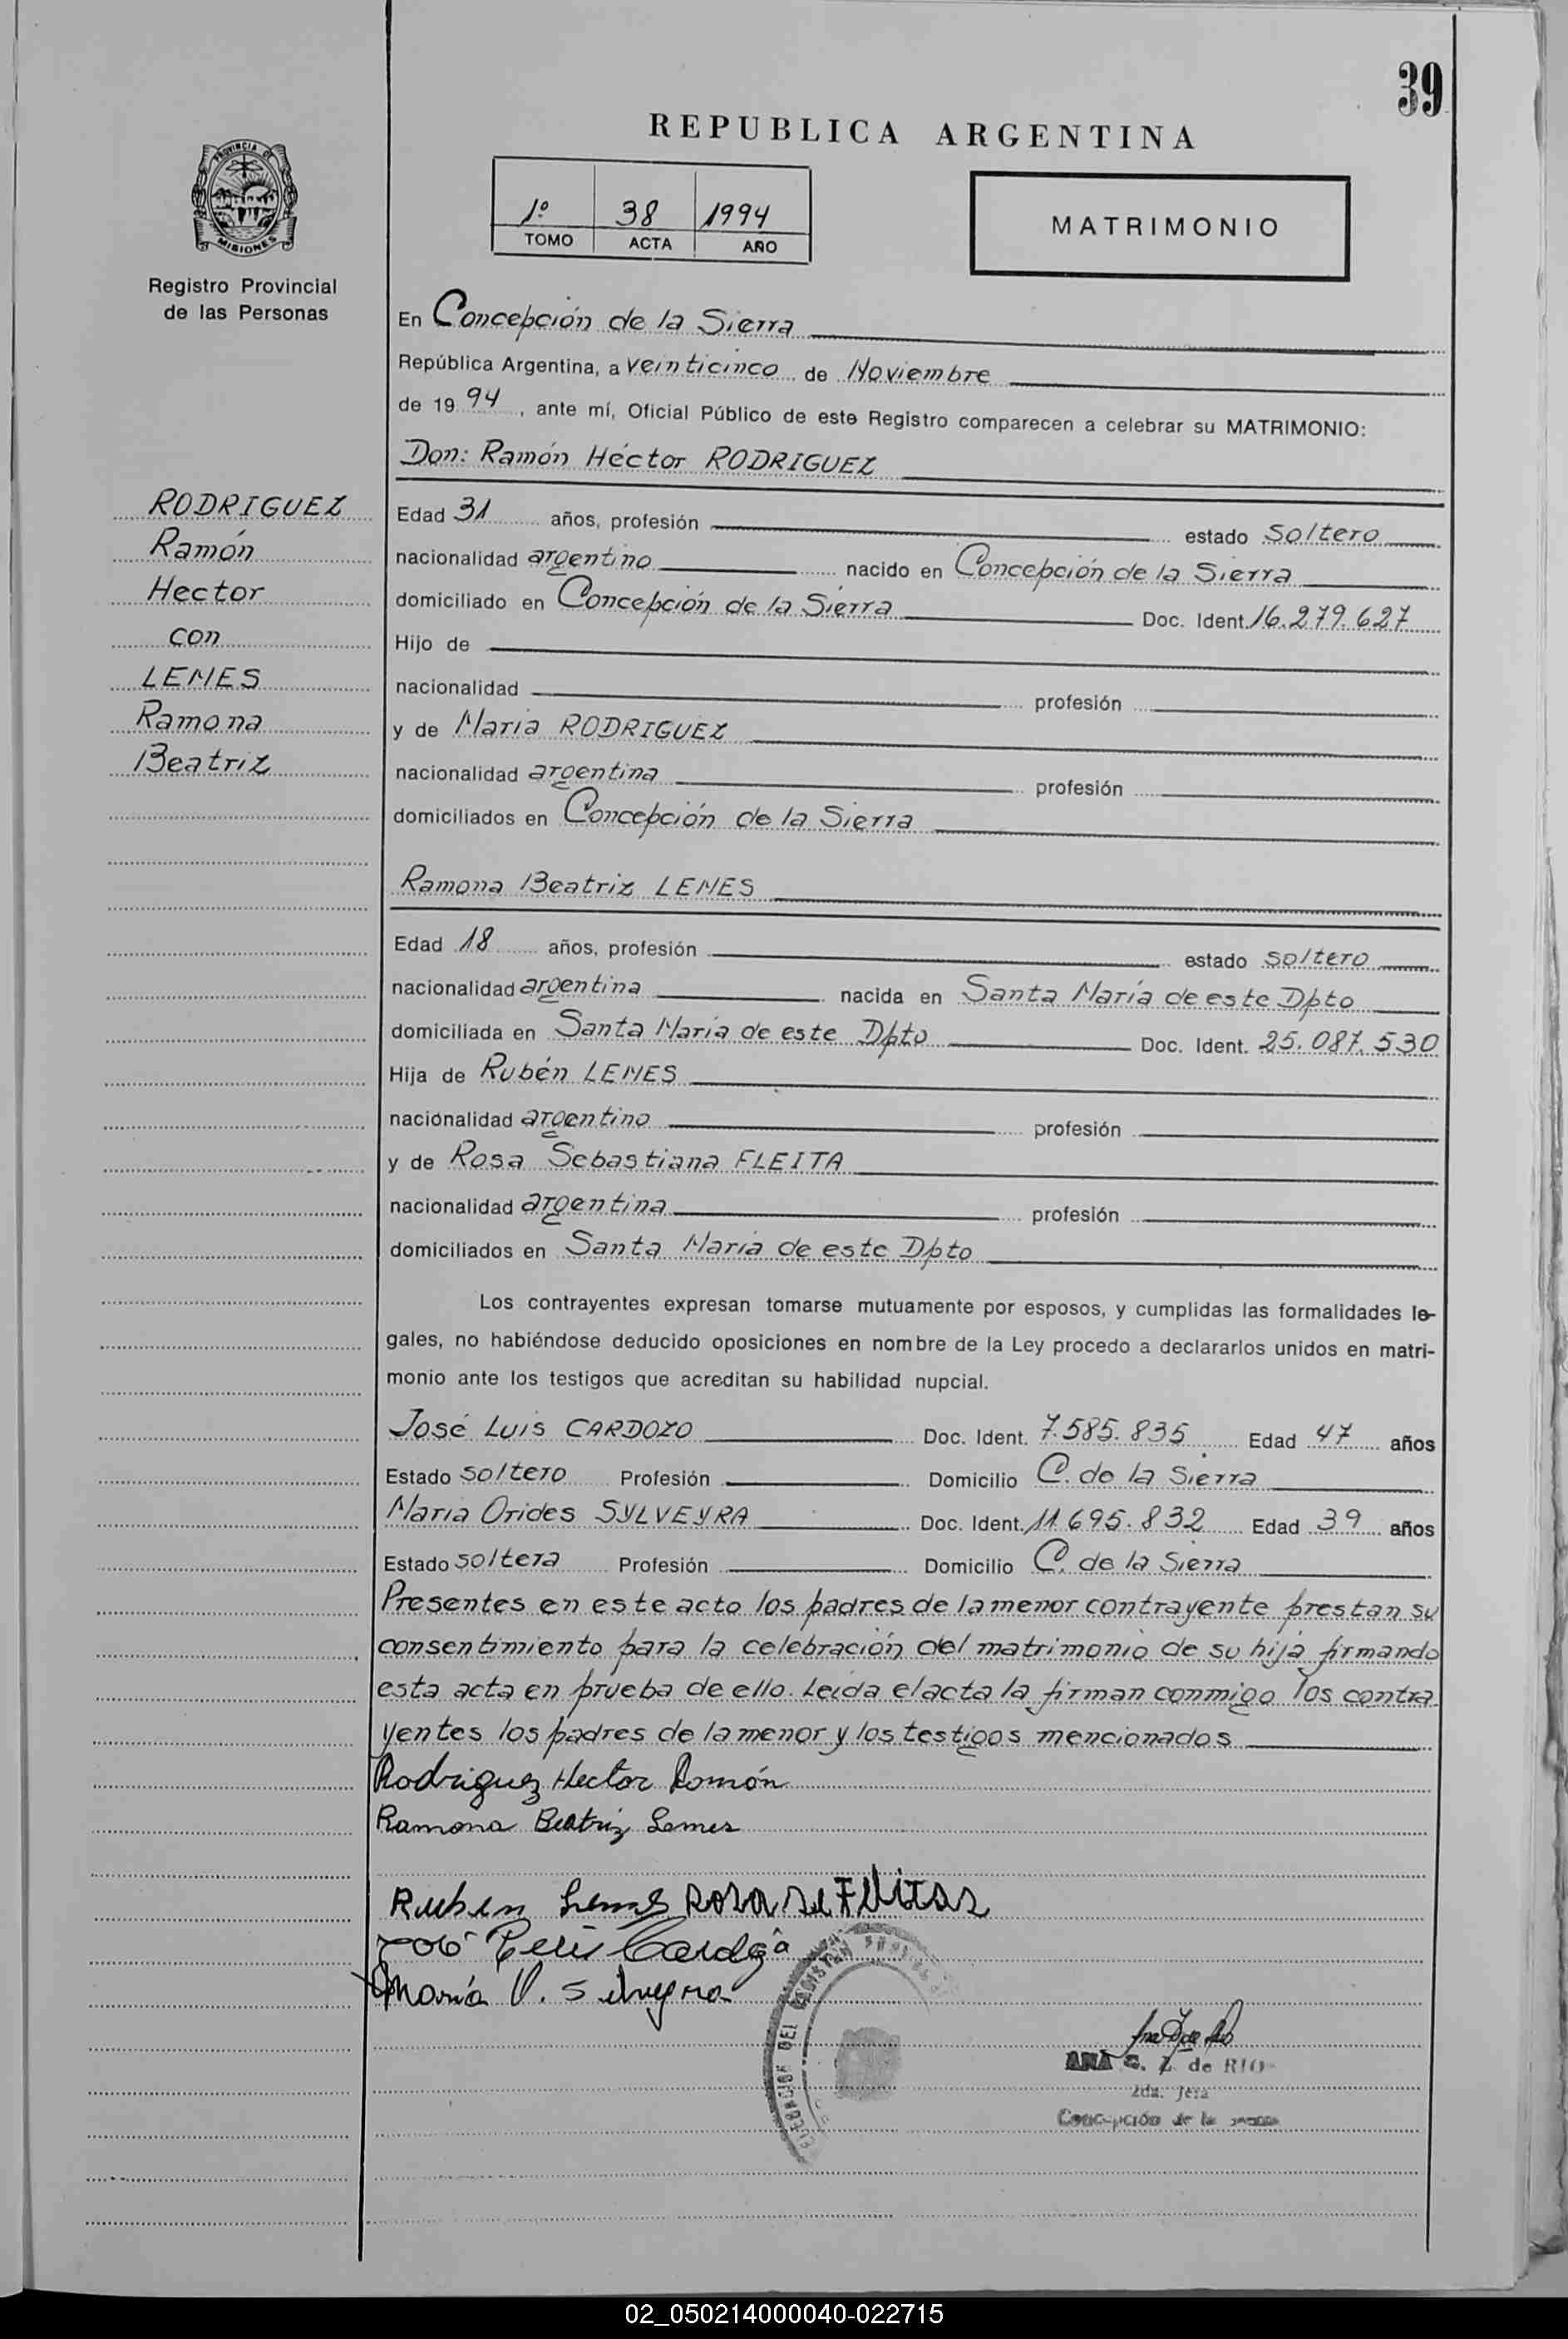 39
REPUBLICA ARGENTINA
PROVINCIA DE
MISIONES
Registro Provincial
de las Personas
1º 38 1994
TOMO ACTA AÑO
MATRIMONIO
En Concepción de la Sierra
República Argentina, a veinticinco de Noviembre
de 19 94, ante mí, Oficial Público de este Registro comparecen a celebrar su MATRIMONIO:
Don: Ramón Héctor RODRIGUEZ
RODRIGUEZ
Ramón
Hector
con
LEMES
Ramona
Beatriz
Edad 31 años, profesión estado soltero
nacionalidad argentino nacido en Concepción de la Sierra
domiciliado en Concepción de la Sierra Doc. Ident. 16.279.627
Hijo de
nacionalidad profesión
y de Maria RODRIGUEZ
nacionalidad argentina profesión
domiciliados en Concepción de la Sierra
Ramona Beatriz LEMES
Edad 18 años, profesión estado soltero
nacionalidad argentina nacida en Santa María de este Dpto
domiciliada en Santa María de este Dpto Doc. Ident. 25.087.530
Hija de Rubén LEMES
nacionalidad argentino profesión
y de Rosa Sebastiana FLEITA
nacionalidad argentina profesión
domiciliados en Santa María de este Dpto
Los contrayentes expresan tomarse mutuamente por esposos, y cumplidas las formalidades le-
gales, no habiéndose deducido oposiciones en nombre de la Ley procedo a declararlos unidos en matri-
monio ante los testigos que acreditan su habilidad nupcial.
José Luis CARDOZO Doc. Ident. 7.585.835 Edad 47 años
Estado soltero Profesión Domicilio C. de la Sierra
Maria Orides SYLVEYRA Doc. Ident. 11.695.832 Edad 39 años
Estado soltera Profesión Domicilio C. de la Sierra
Presentes en este acto los padres de la menor contrayente prestan su
consentimiento para la celebración del matrimonio de su hija firmando
esta acta en prueba de ello. Leída el acta la firman conmigo los contra
yentes los padres de la menor y los testigos mencionados
Rodriguez Hector Ramón
Ramona Beatriz Lemes
Ruben Lemes Rosa se Flitas
José Luis Cardozo
María O. Silveyra
DEL REGISTRO
ANA G. Z. de RIO
2da. Jefa
Concepción de la Sierra
02_050214000040-022715